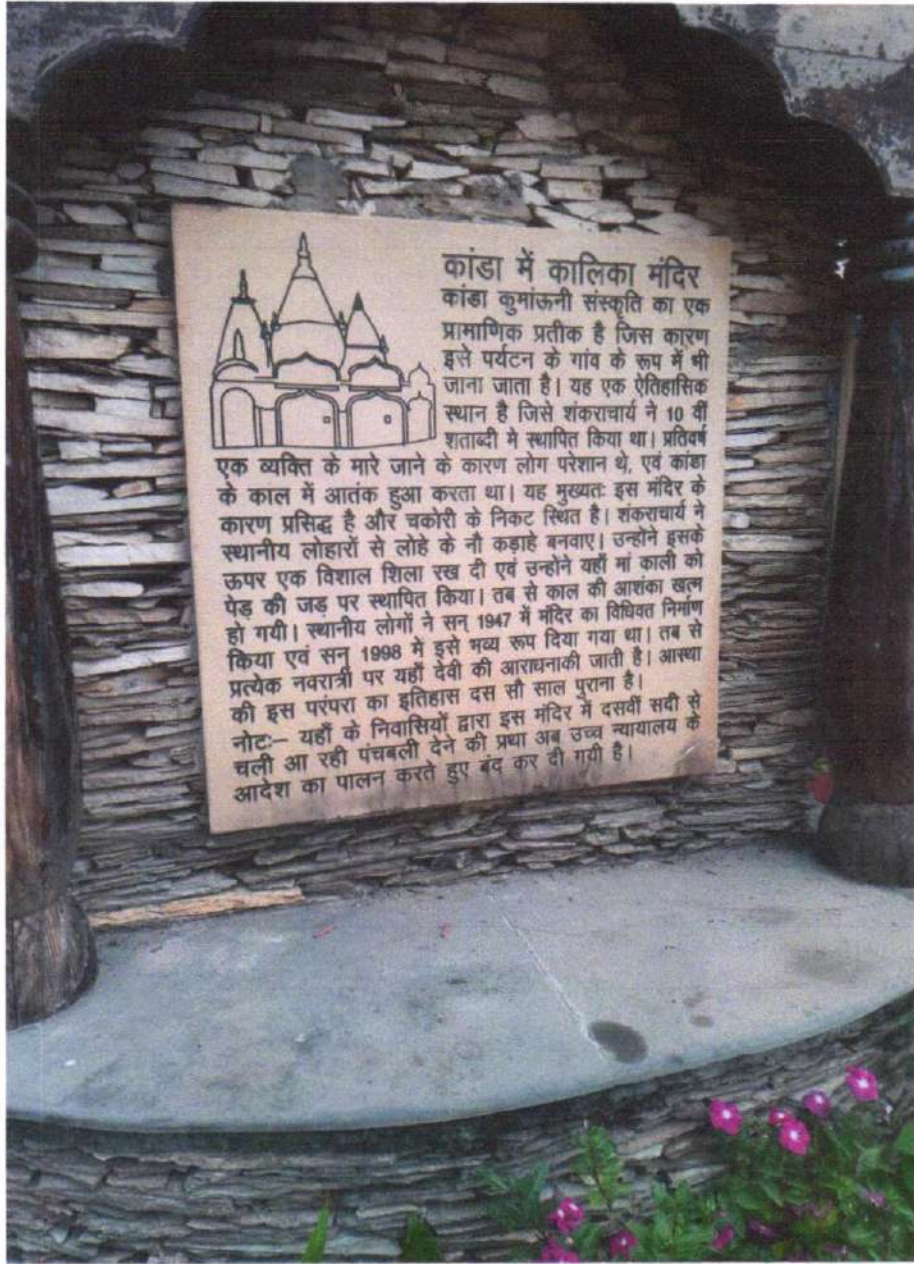 कांडा में कालिका मंदिर
कांडा कुमांऊनी संस्कृति का एक
प्रामाणिक प्रतीक है जिस कारण
इसे पर्यटन के गांव के रूप में भी
जाना जाता है। यह एक ऐतिहासिक
स्थान है जिसे शंकराचार्य ने 10 वीं
शताब्दी मे स्थापित किया था। प्रतिवर्ष
एक व्यक्ति के मारे जाने के कारण लोग परेशान थे, एवं कांडा
के काल में आतंक हुआ करता था। यह मुख्यतः इस मंदिर के
कारण प्रसिद्ध है और चकोरी के निकट स्थित है। शंकराचार्य ने
स्थानीय लोहारों से लोहे के नौ कड़ाहे बनवाए। उन्होंने इसके
ऊपर एक विशाल शिला रख दी एवं उन्होंने यहाँ मां काली को
पेड़ की जड़ पर स्थापित किया। तब से काल की आशंका खत्म
हो गयी। स्थानीय लोगों ने सन् 1947 में मंदिर का विधिवत निर्माण
किया एवं सन् 1998 में इसे भव्य रूप दिया गया था। तब से
प्रत्येक नवरात्री पर यहाँ देवी की आराधनाकी जाती है। आस्था
की इस परंपरा का इतिहास दस सौ साल पुराना है।
नोटः– यहाँ के निवासियों द्वारा इस मंदिर में दसवीं सदी से
चली आ रही पंचबली देने की प्रथा अब उच्च न्यायालय के
आदेश का पालन करते हुए बंद कर दी गयी है।